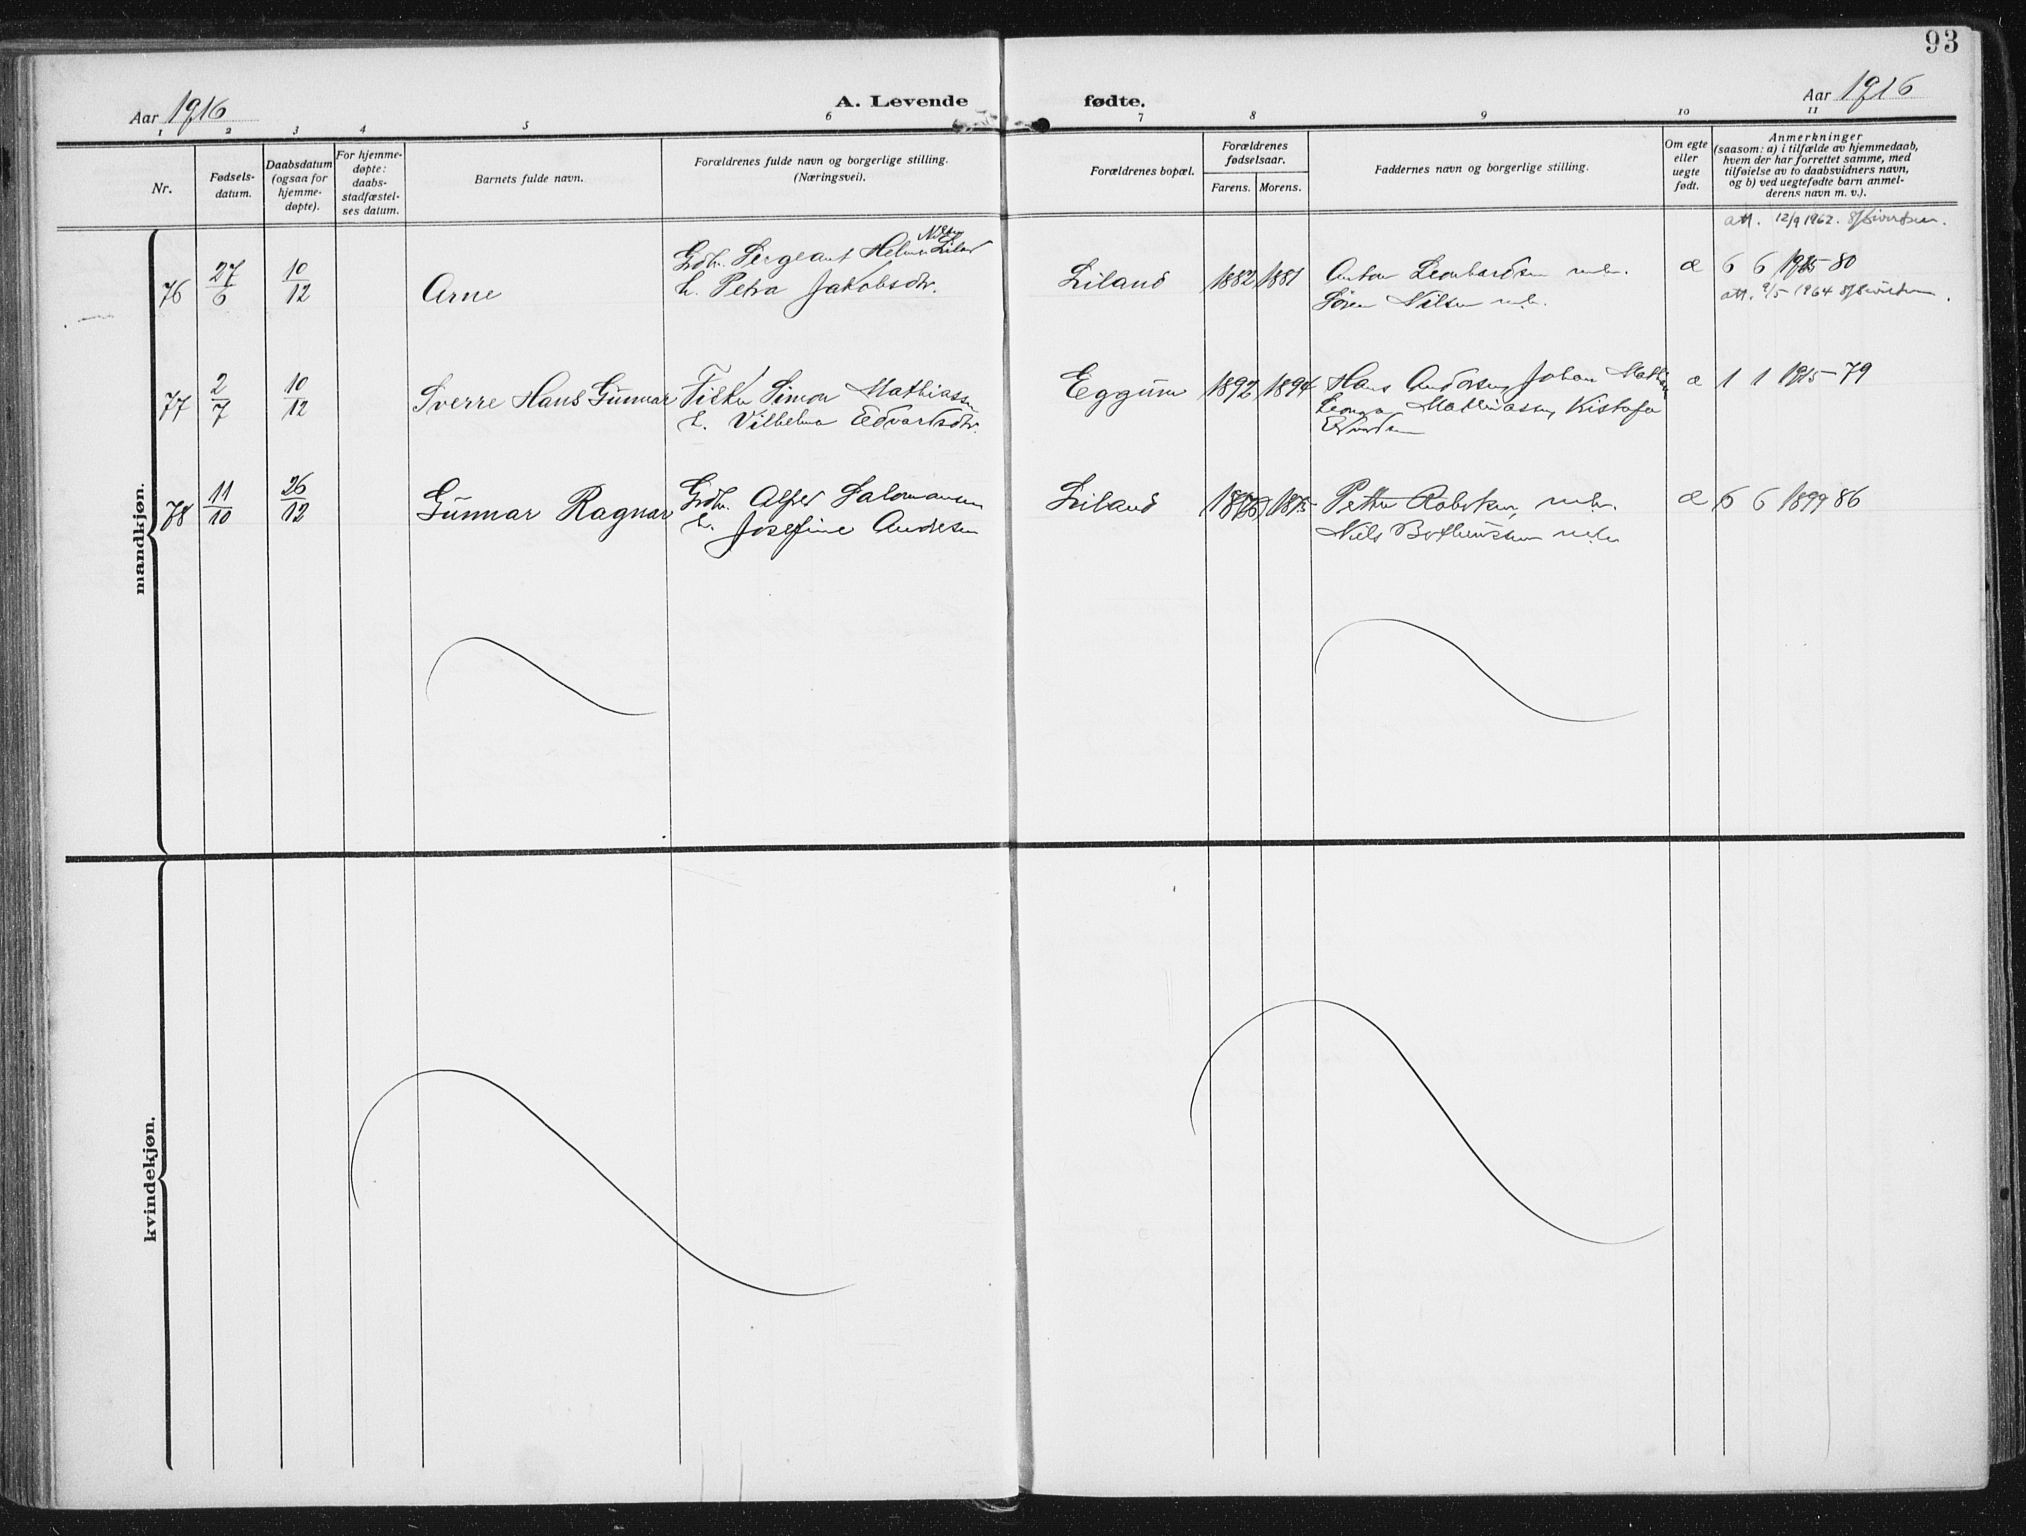 93
Aar 1916
A. Levende fødte.
Aar 1916
1 2 3 4 5 6 7 8 9 10 11
Nr.
Fødsels-
datum.
Daabsdatum
(ogsaa for
hjemme-
døpte).
For hjemme-
døpte:
daabs-
stadfæstel-
ses datum.
Barnets fulde navn.
Forældrenes fulde navn og borgerlige stilling.
(Næringsvei).
Forældrenes bopæl.
Forældrenes
fødselsaar.
Farens. Morens.
Faddernes navn og borgerlige stilling.
Om egte
eller
uegte
født.
Anmerkninger
(saasom: a) i tilfælde av hjemmedaab,
hvem der har forrettet samme, med
tilføielse av to daabsvidners navn,
og b) ved uegtefødte barn anmel-
derens navn m. v.).
mandkjøn.
att. 12/9 1962.
76 27/6 10/12 Arne
Gdbr. Sergeant Helmer Nilsen Liland
h. Petra Jakobsdtr.
Liland 1882 1881
Anton Leonhardsen
Søren Nilsen
æ 6 6 1915 80
att. 9/5 1964
77 2/7 10/12 Sverre Hans Gunnar
Fisker Simon Mathiassen
h. Vilhelma Edvardsdtr.
Eggum 1892 1894
Hans Andersen, Johan
Mathiassen, Kristofer
æ 1 1 1915 - 79
78 11/10 26/12 Gunnar Ragnar
Gdbr. Alfred Salomonsen
h. Josefine Andersen
Liland 1875
Petter
Niels
æ 6 6 1899 86
kvindekjøn.